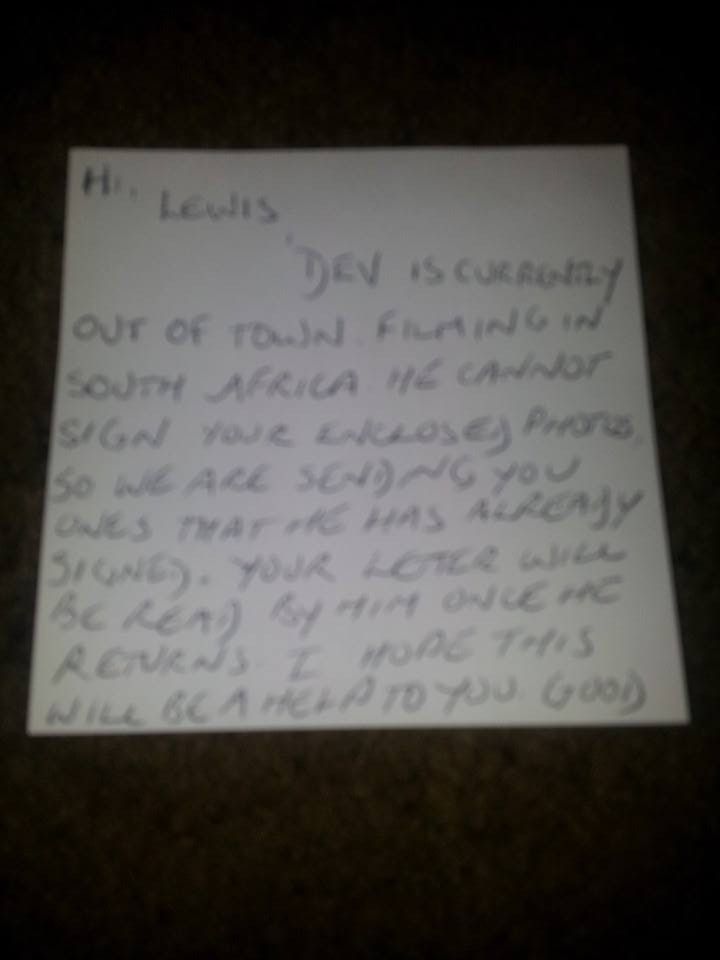 Hi,
LEWIS
DEV IS CURRENTLY
OUT OF TOWN. FILMING IN
SOUTH AFRICA HE CANNOT
SIGN YOUR ENCLOSED PHOTOS,
SO WE ARE SENDING YOU
ONES THAT HE HAS ALREADY
SIGNED. YOUR LETTER WILL
BE READ BY HIM ONCE HE
RETURNS I HOPE THIS
WILL BE A HELP TO YOU. GOOD